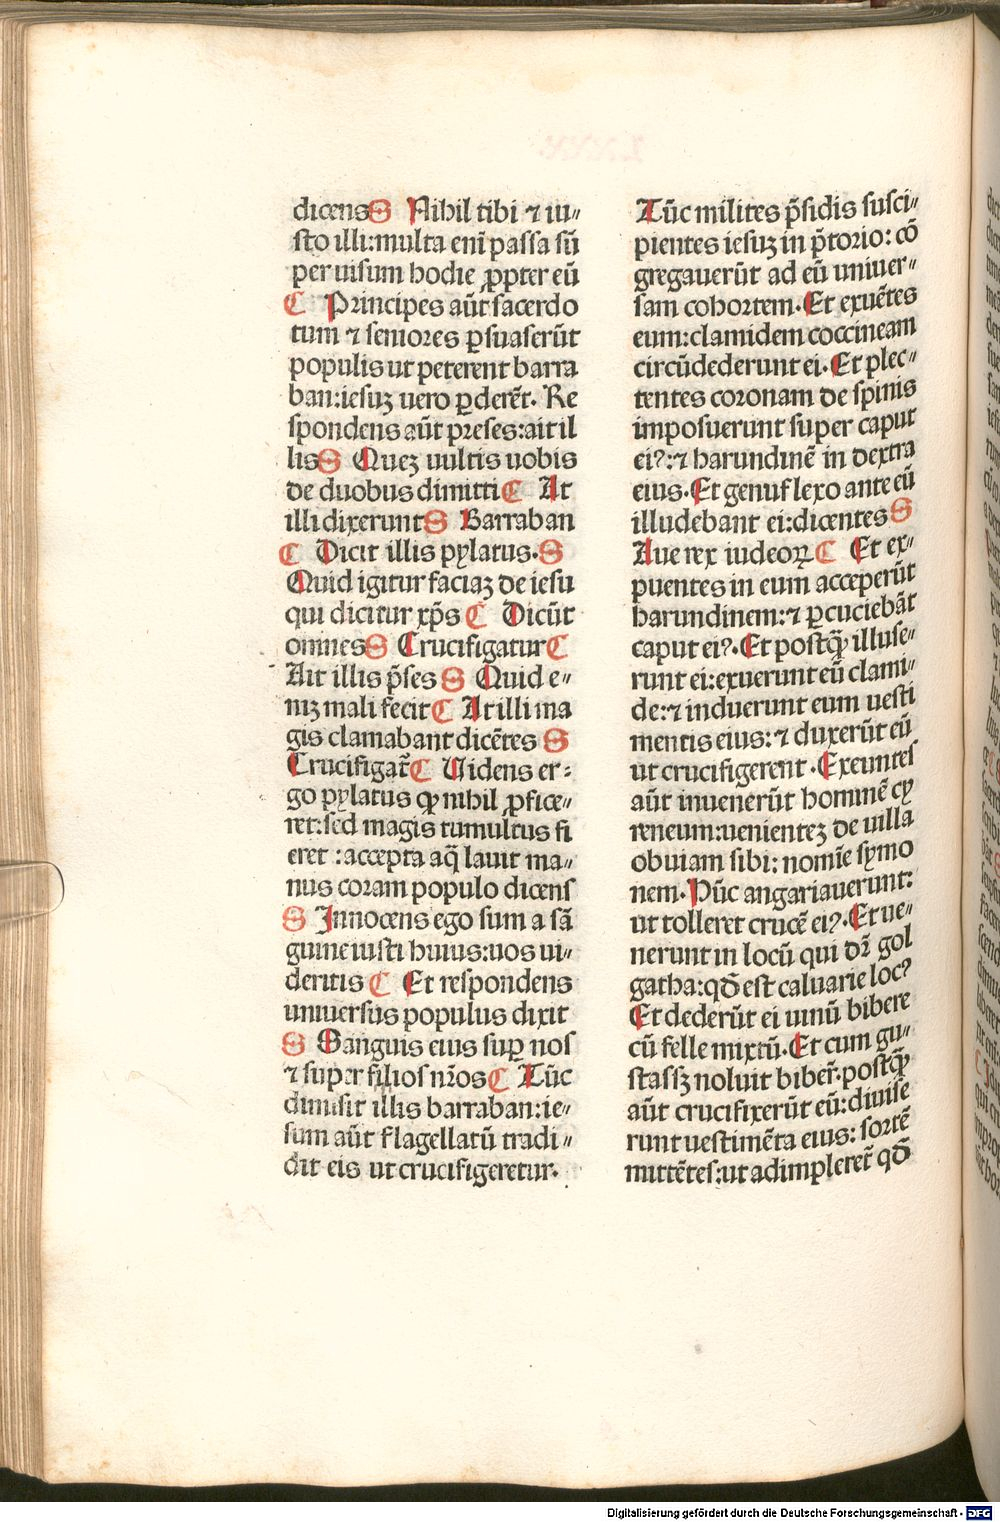 dicens S Nihil tibi ⁊ iu„
sto illi:multa eni̅ passa su̅
per uisum hodie ꝓpter eu̅
C Principes au̅t sacerdo
tum ⁊ seniores ꝑsuaseru̅t
populis ut peterent barra
ban:iesuʒ uero ꝑdere̅t. Re
spondens au̅t preses:ait il
lis S Queʒ uultis uobis
de duobus dimitti C At
illi dixerunt S Barraban
C Dicit illis pylatus. S
Quid igitur faciaʒ de iesu
qui dicitur xp̅s C Dicu̅t
omnes S Crucifigatur C
Ait illis p̅ses S Quid e„
niʒ mali fecit C At illi ma
gis clamabant dice̅tes S
Crucifigat᷑ C Uidens er:
go pylatus ꝙ nihil ꝓfice„
ret:sed magis tumultus fi
eret :accepta aq̅ lauit ma„
nus coram populo dicens
S Innocens ego sum a sa̅
guine iusti huius:uos ui„
deritis C Et respondens
uniuersus populus dixit
S Sanguis eius suꝑ nos
⁊ super filios nr̅os C Tu̅c
dimisit illis barraban:ie„
sum au̅t flagellatu̅ tradi„
dit eis ut crucifigeretur.
Tu̅c milites p̅sidis susci„
pientes iesuʒ in p̅torio: co̅
gregaueru̅t ad eu̅ uniuer„
sam cohortem. Et exue̅tes
eum:clamidem coccineam
circu̅dederunt ei. Et plec„
tentes coronam de spinis
imposuerunt super caput
eiꝰ:⁊ harundine̅ in dextra
eius. Et genuflexo ante eu̅
illudebant ei:dicentes S
Aue rex iudeoꝝ C Et ex„
puentes in eum acceperu̅t
harundinem:⁊ ꝑcucieba̅t
caput eiꝰ. Et postꝙ̅ illuse„
runt ei:exuerunt eu̅ clami„
de:⁊ induerunt eum uesti
mentis eius:⁊ duxeru̅t eu̅
ut crucifigerent .Exeuntes
au̅t inueneru̅t homine̅ cy
reneum:uenienteʒ de uilla
obuiam sibi: nomi̅e symo
nem. Hu̅c angariauerunt:
ut tolleret cruce̅ eiꝰ. Et ue„
nerunt in locu̅ qui dr̅ gol
gatha:qd̅ est caluarie locꝰ
Et dederu̅t ei uinu̅ bibere
cu̅ felle mixtu̅. Et cum gu„
stassʒ noluit biber̅.postꝙ̅
au̅t crucifixeru̅t eu̅:diuise
runt uestime̅ta eius: sorte̅
mitte̅tes:ut adimpleret᷑ qd̅
Digitalisierung gefördert durch die Deutsche Forschungsgemeinschaft - DFG